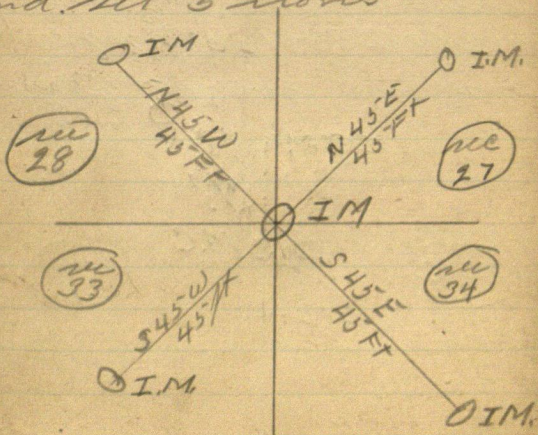 nd. set 5 irons
I M
I.M.
N 45 W
45 Ft
N 45 E
45 Ft
sec
28
sec
27
I M
sec
33
sec
34
S 45 W
45 Ft
S 45 E
45 Ft
I.M.
I M.